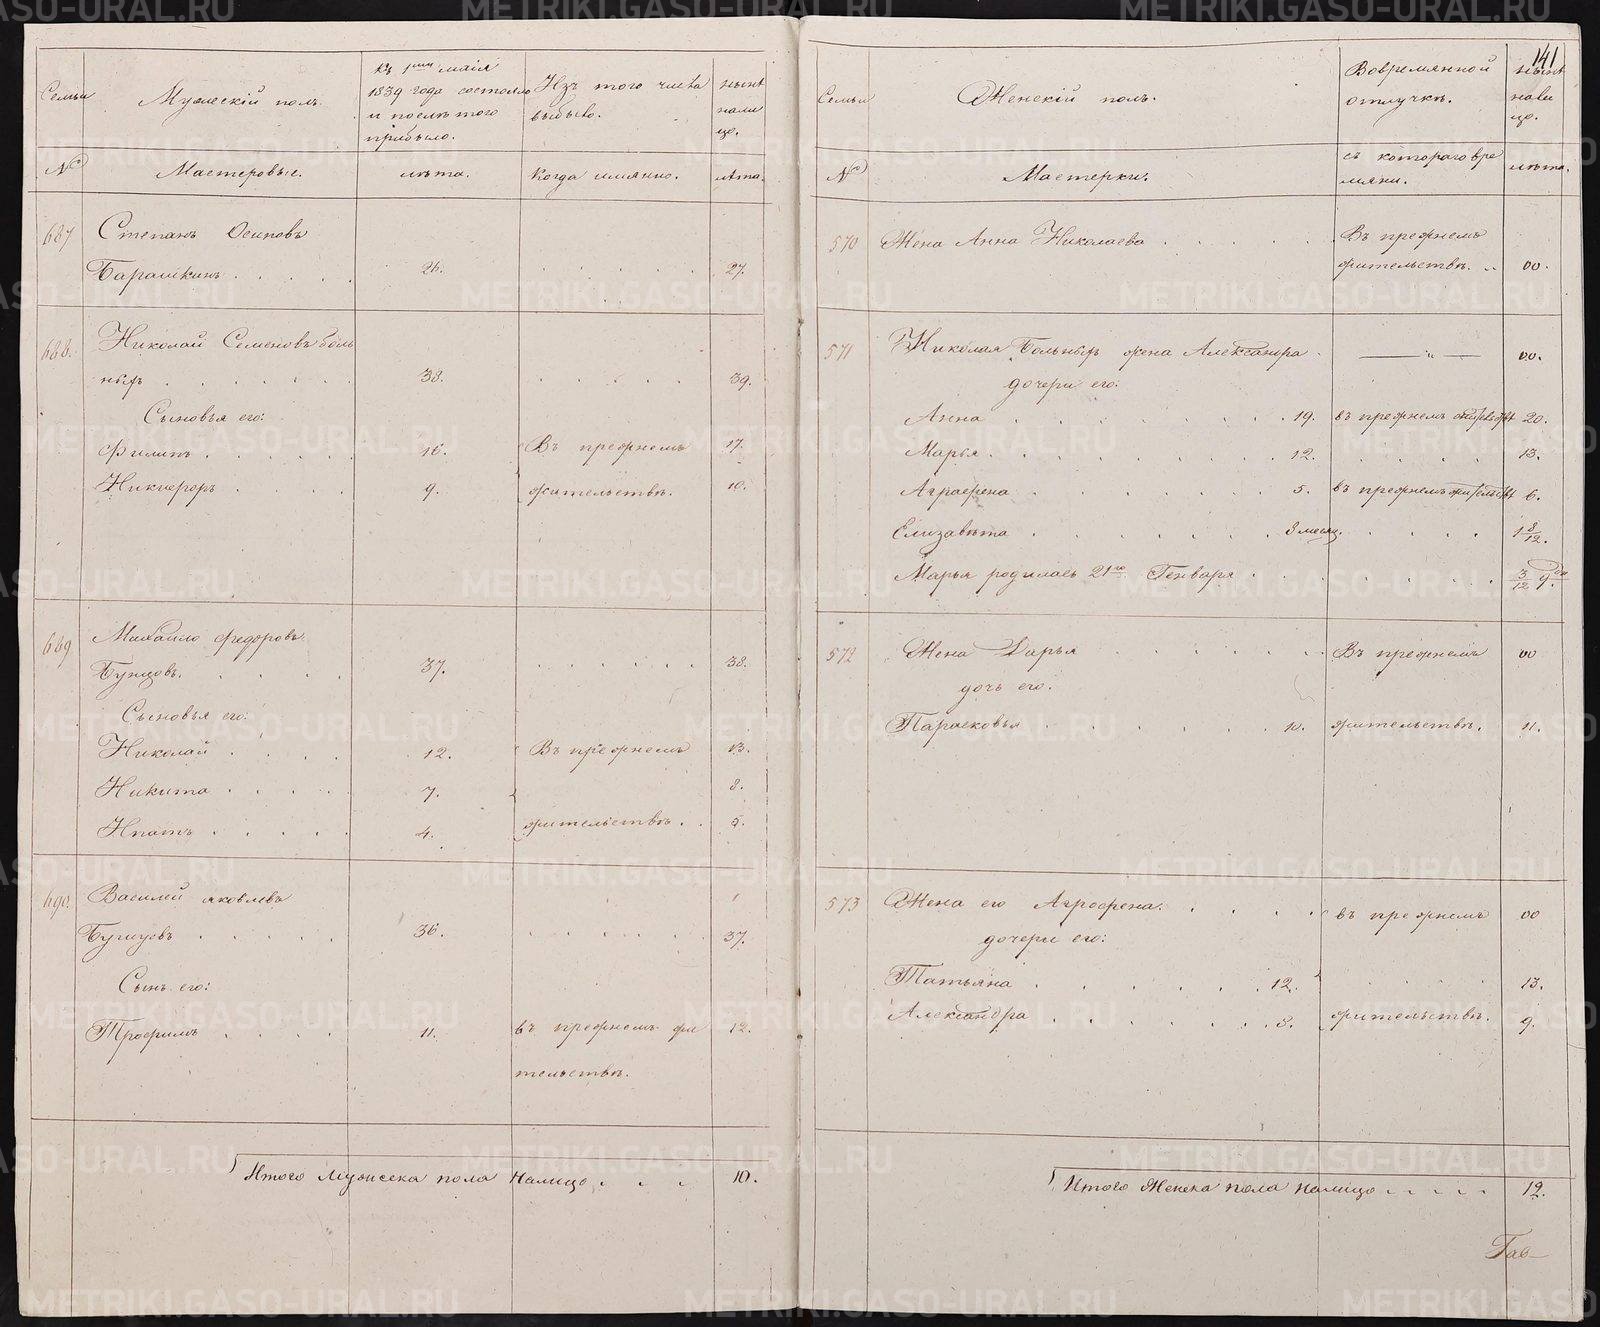 141
Семьи
Мужескій полъ.
Къ 1му маія
1839 года состояло
и послѣ того
прибыло.
Изъ того числа
выбыло.
нынѣ
нали
цо.
№
Мастеровые.
лѣта.
Когда имянно.
лѣта.
687
Степанъ Осиповъ
Барашкинъ . . . . . 26. . . . . . . 27.
688.
Николай Семеновъ Боль
ныхъ . . . . . . . 38. . . . . . 39.
Сыновья его:
Филипъ . . . . . . 16. Въ прежнемъ 17.
Никифоръ . . . . 9. жительствѣ. 10.
689
Михайло Федоровъ
Бунцовъ. . . . . 37. . . . . . . 38.
Сыновья его:
Николай . . . . 12. Въ прежнемъ 13.
Никита . . . . . 7. 8.
Ипатъ . . . . . 4. жительствѣ. . 5.
690.
Василей Яковлевъ
Бунцовъ . . . . . 36. . . . . . . . 37.
Сынъ его:
Трофимъ . . . . 11. въ прежнемъ жи 12.
тельствѣ.
Итого Мужеска пола Налицо . . . . 10.
Семьи
Женскій полъ.
Вовремянной
отлучкѣ.
нынѣ
нали
цо.
№
Мастерки.
съ котораго вре
мяни.
лѣта.
570 Жена Анна Николаева . . . . . . Въ прежнемъ
жительствѣ. .. 00.
571 Николая Больныхъ жена Александра . — „ — 00.
дочери его:
Анна . . . . . . . . 19. въ прежнемъ жительствѣ 20.
Марья . . . . . . . . 12. . . . . . 13.
Аграфена . . . . . . . 5. въ прежнемъ жительствѣ 6.
Елизавѣта . . . . . . . 8 месяц. . . . . . 1 8/12.
Марья родилась 21го Генваря . . . . . . . . 3/12 9 дн
572 Жена Дарья . . . . . . Въ прежнемъ 00
дочь его.
Парасковья . . . . . . . 10. жительствѣ. 11.
573 Жена его Агрофена. . . . . . въ прежнемъ 00
дочери его:
Татьяна . . . . . . . 12. . . . . . 13.
Александра . . . . . . . 8. жительствѣ. 9.
Итого Женска пола налицо . . . . . 12.
Гав